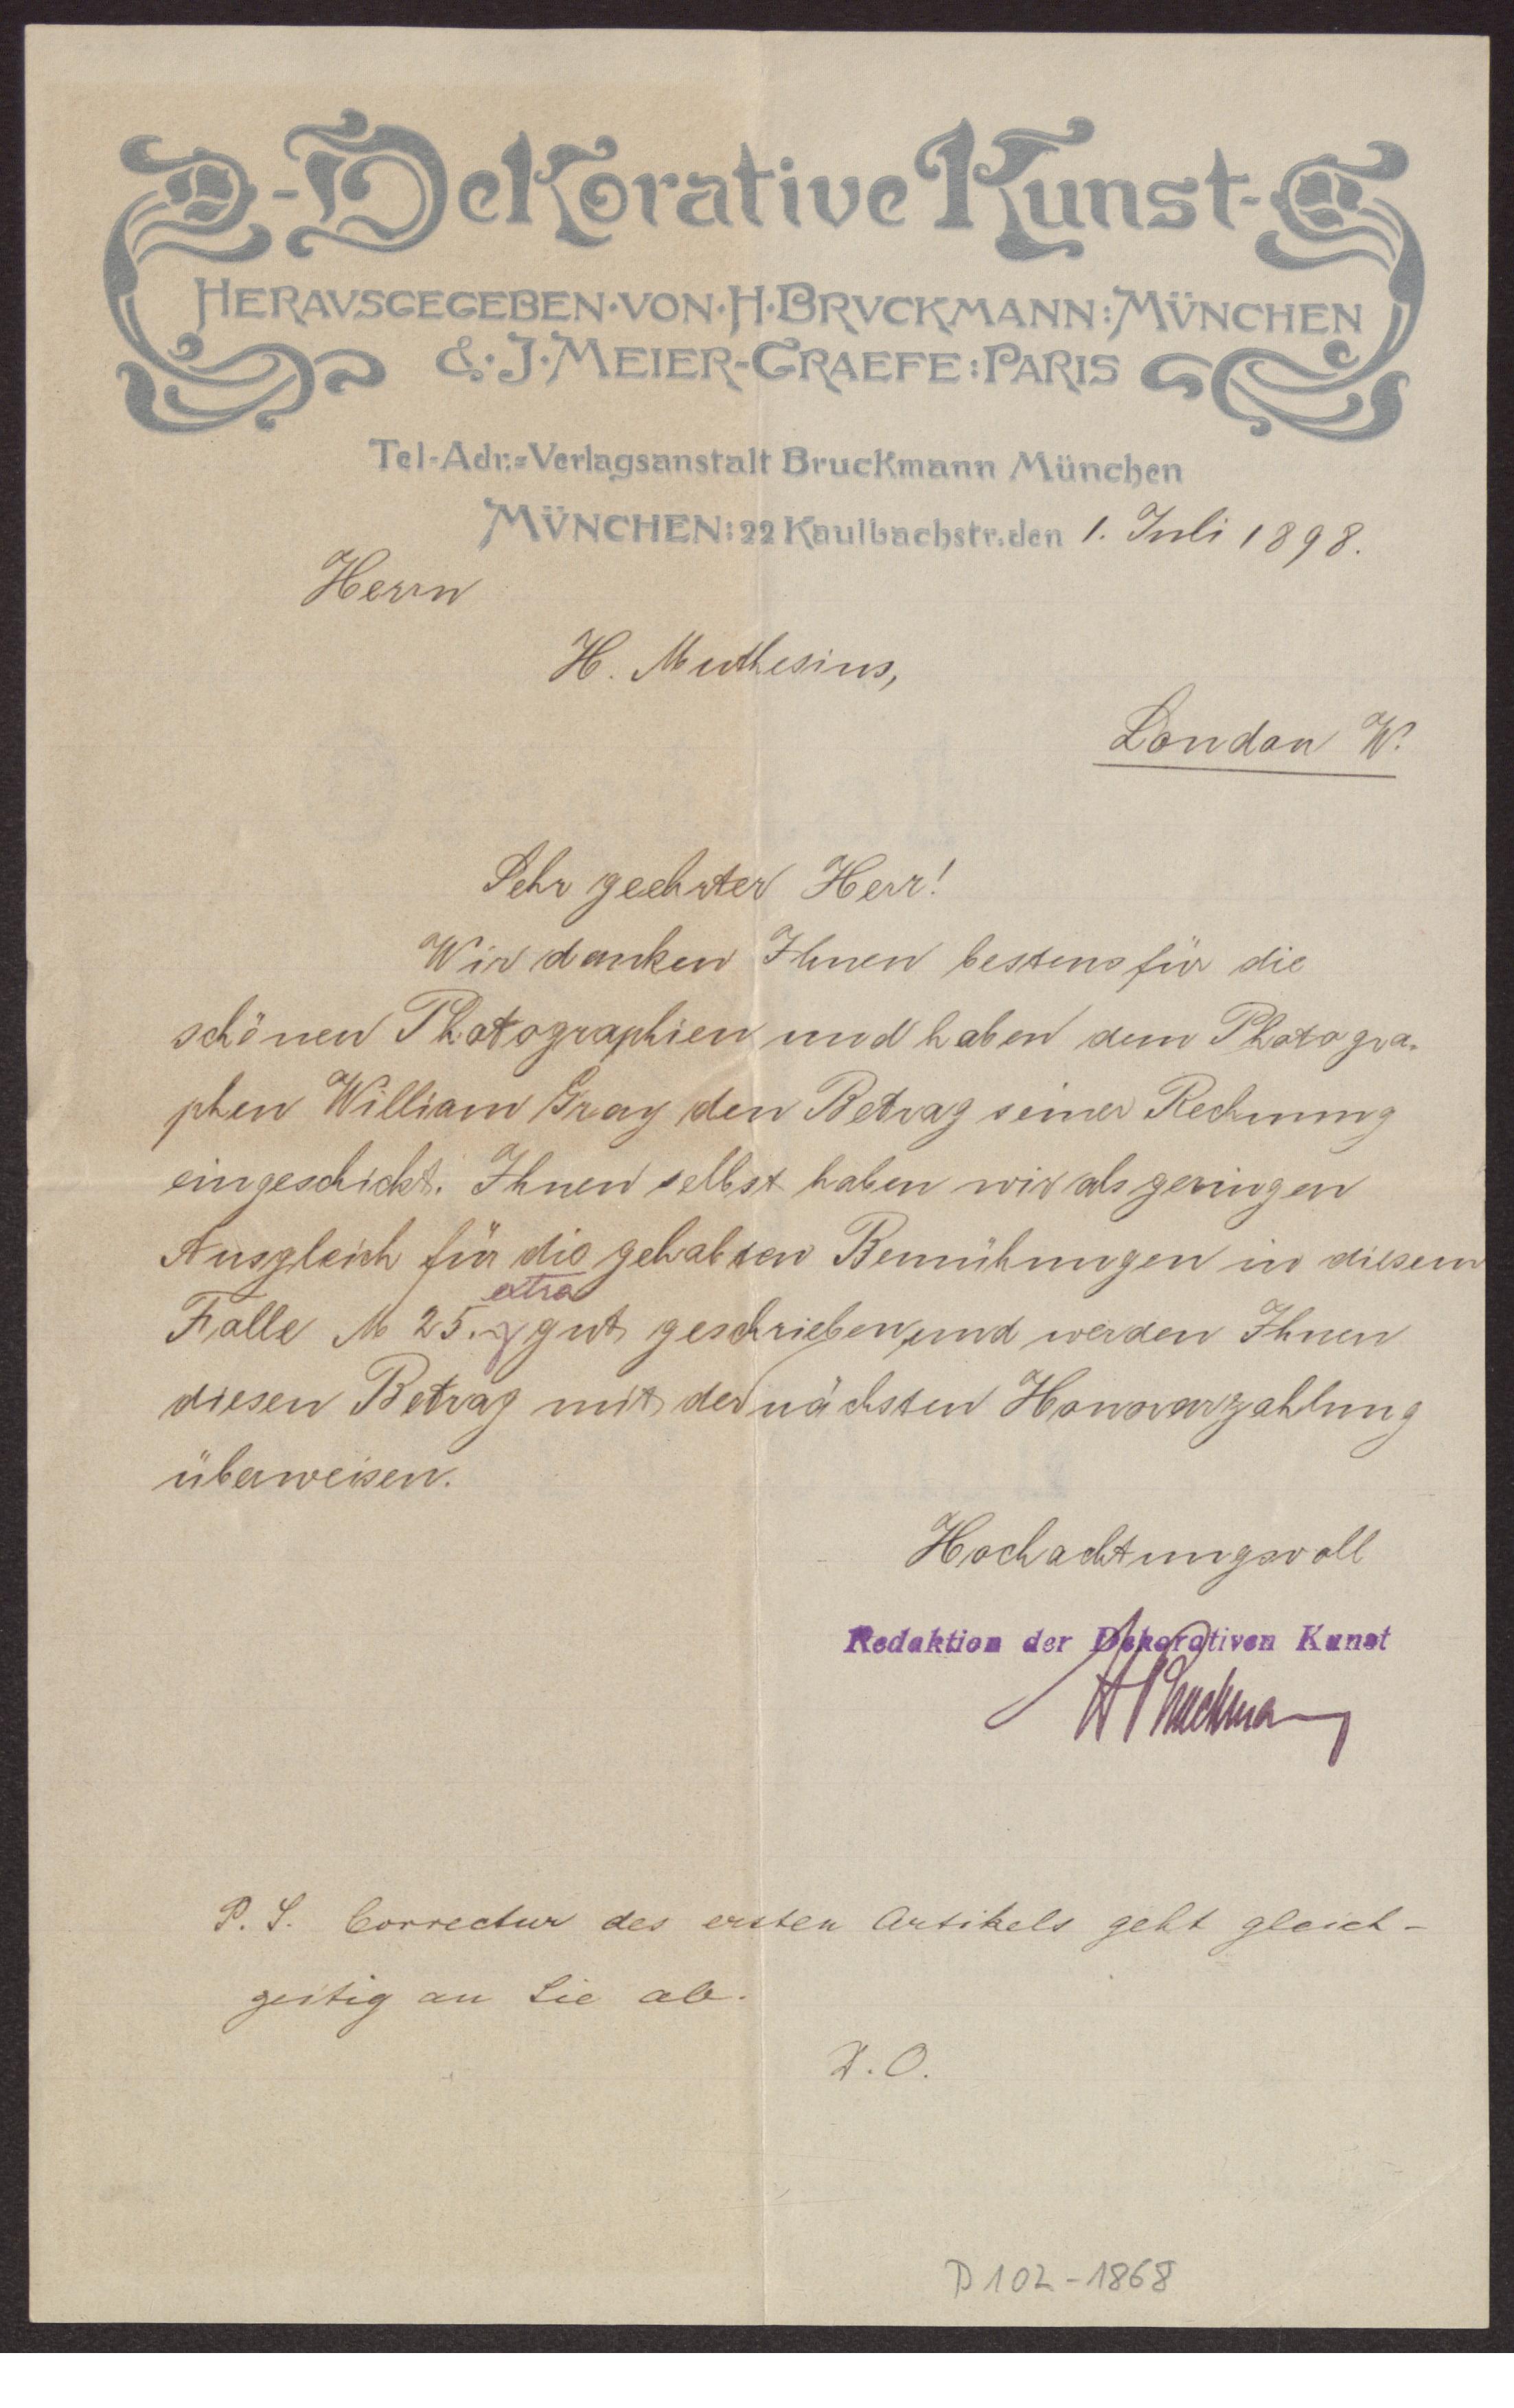 Dekorative Kunst
HERAVSGEGEBEN·VON·H·BRVCKMANN:MÜNCHEN
&·J·MEIER-GRAEFE:PARIS
Tel-Adr.=Verlagsanstalt Bruckmann München
MÜNCHEN:22 Kaulbachstr.den 1. Juli 1898.
Herrn
H. Muthesius,
London W.
Sehr geehrter Herr!
Wir danken Ihnen bestens für die
schönen Photographien und haben dem Photogra-
phen William Gray den Betrag seiner Rechnung
eingeschickt. Ihnen selbst haben wir als geringen
Ausgleich für die gehabten Bemühungen in diesem
extra
Falle M 25.- gut geschrieben, und werden Ihnen
diesen Betrag mit der nächsten Honorarzahlung
überweisen.
Hochachtungsvoll
Redaktion der Dekorativen Kunst
H Bruckmann
P. S. Correctur des ersten Artikels geht gleich-
zeitig an Sie ab.
D. O.
D 102-1868